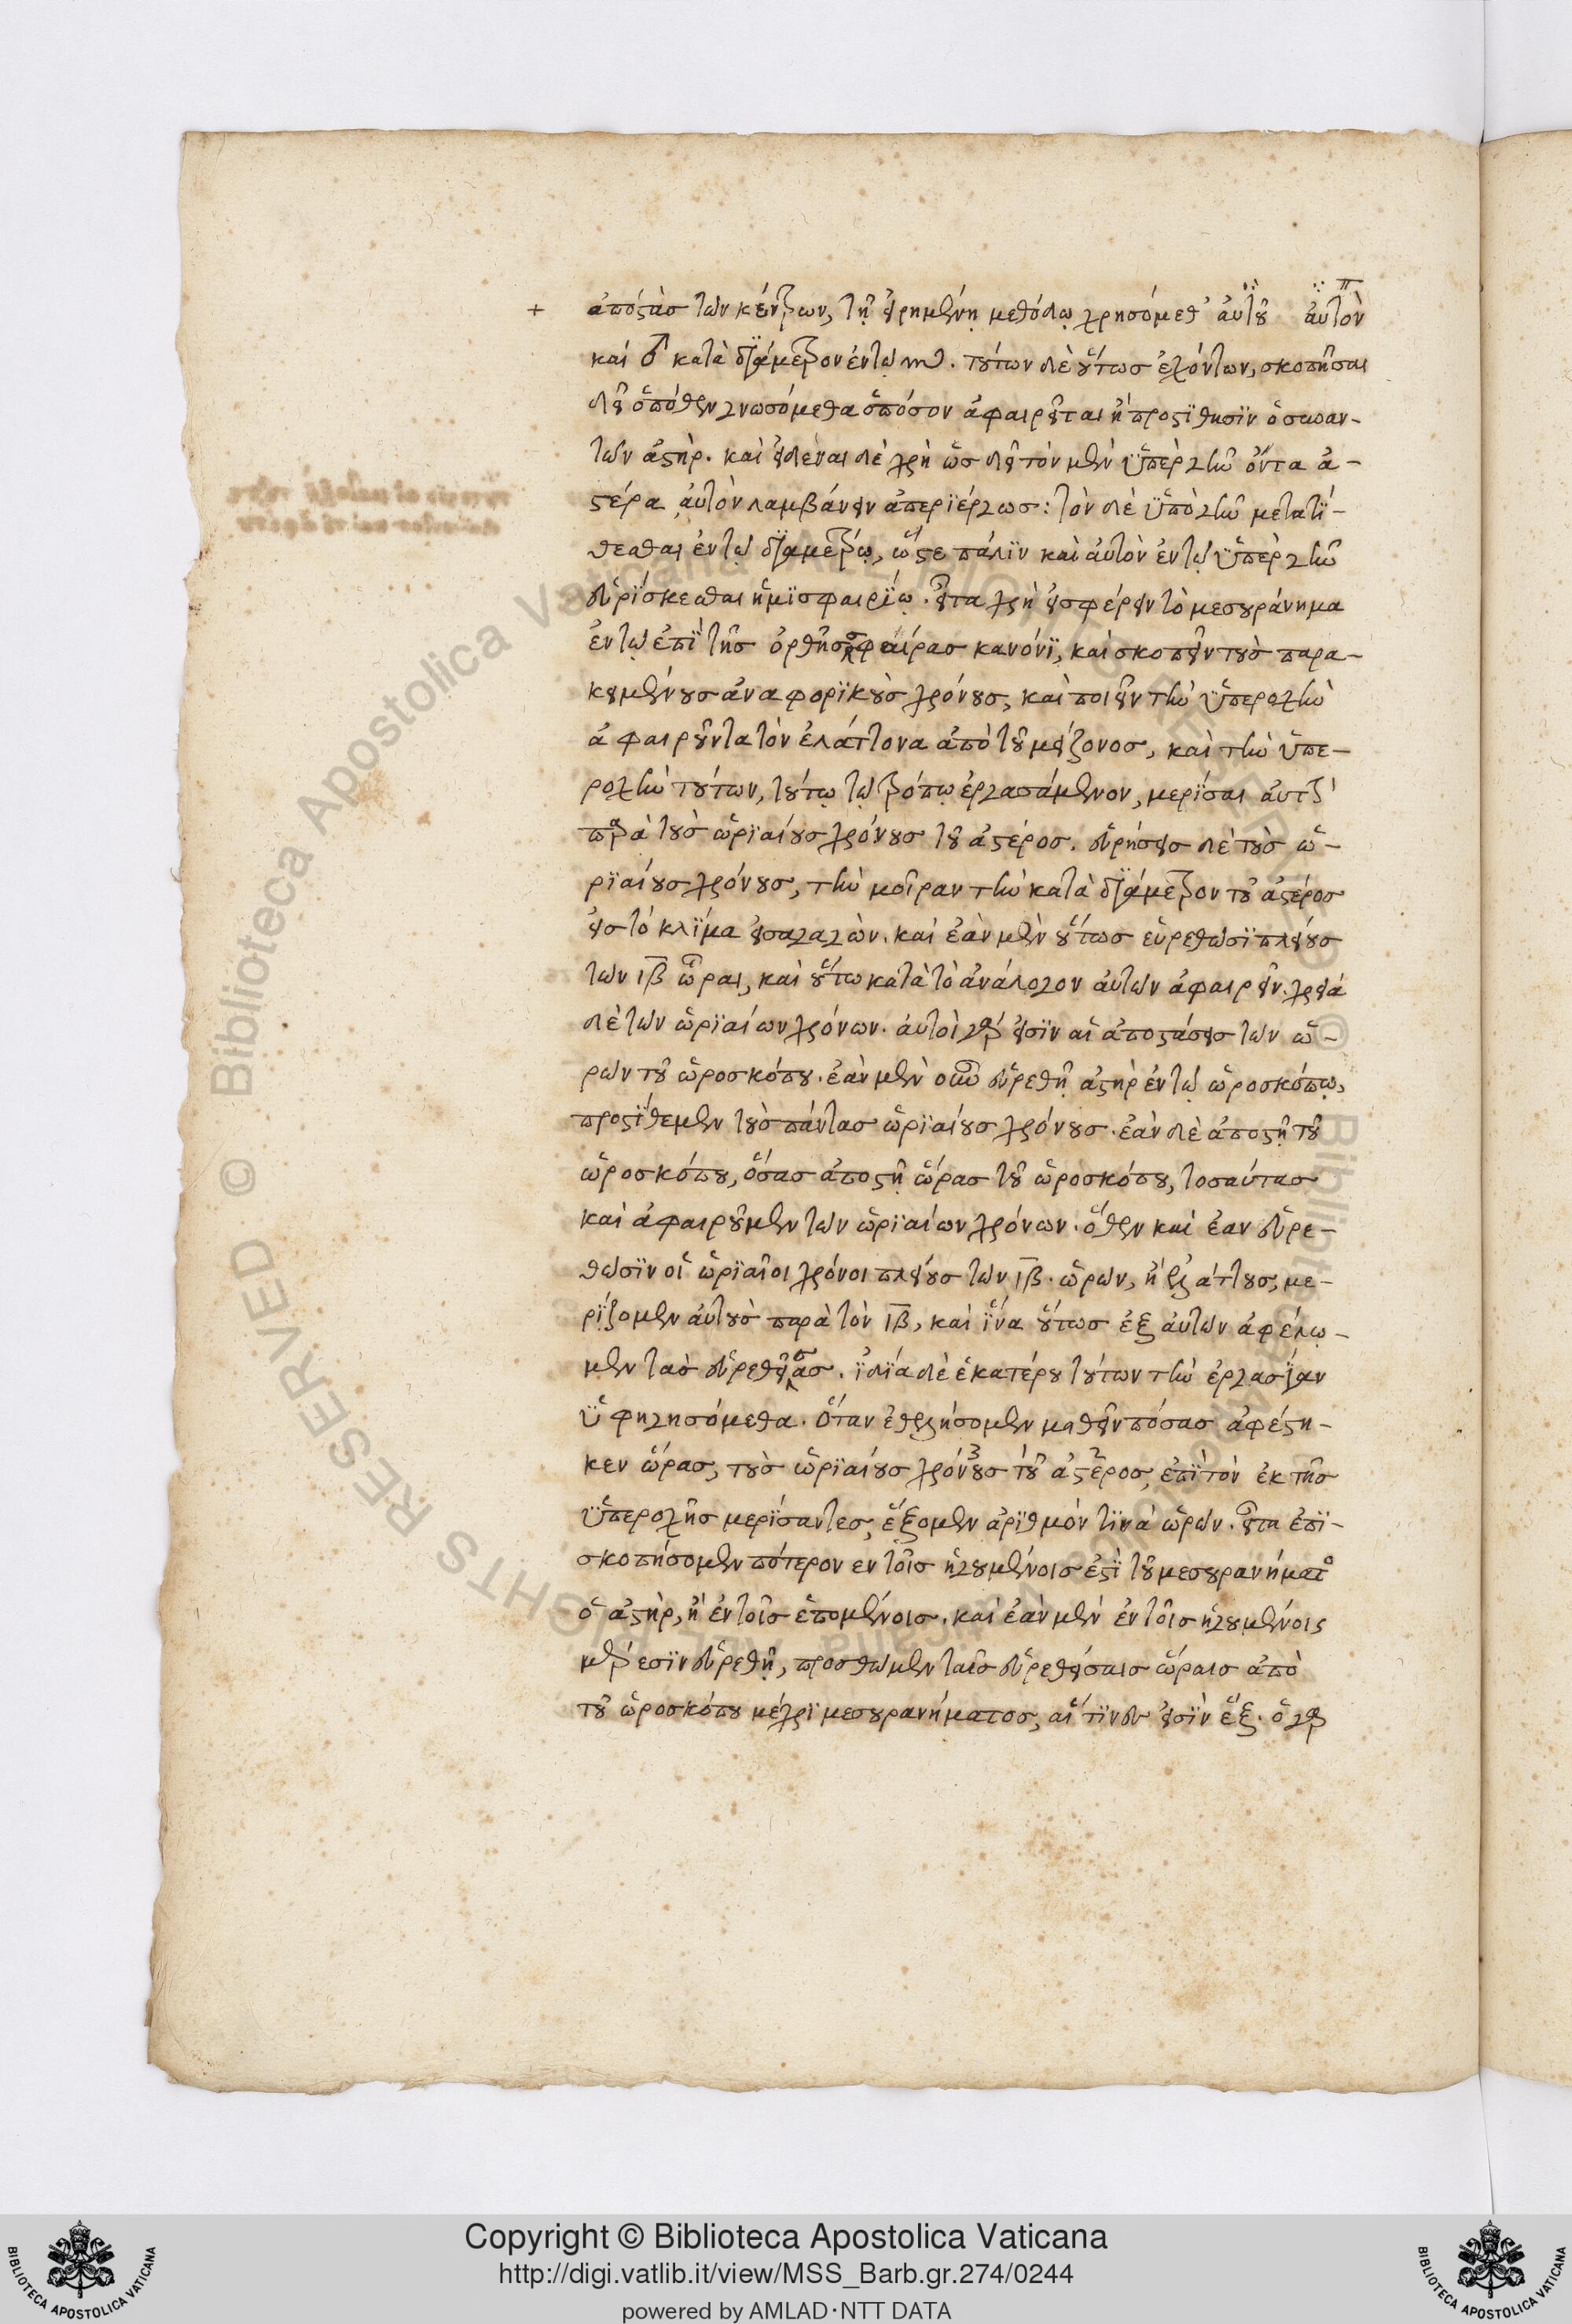 ἀποστὰς τῶν κέντρων, τῇ εἰρημένῃ μεθόδῳ χρησόμεθ' αὐτοῦ αὐτὸν
καὶ ♂ κατὰ διάμετρον ἐν τῷ ♏. τούτων δὲ οὕτως ἐχόντων, σκοπῆσαι
δεῖ ὁπόθεν γνωσόμεθα ὁπόσον ἀφαιρεῖται ἢ προστίθησιν ὁσωαν-
τῶν ἀστὴρ. καὶ εἰδέναι δὲ χρὴ ὡς δεῖ τὸν μὲν ὑπὲρ γῆν ὄντα ἀ-
στέρα αὐτὸν λαμβάνειν ἀπεριέργως: τὸν δὲ ὑπὸ γῆν μετατί-
θεσθαι ἐν τῷ διαμέτρῳ, ὥστε πάλιν καὶ αὐτὸν ἐν τῷ ὑπὲρ γῆν
εὑρίσκεσθαι ἡμισφαιρίῳ. εἶτα χρὴ εἰσφέρειν τὸ μεσουράνημα
ἐν τῷ ἐπὶ τῆς ὀρθῆς σφαίρας κανόνι, καὶ σκοπεῖν τοὺς παρα-
κειμένους ἀναφορικοὺς χρόνους, καὶ ποιεῖν τὴν ὑπεροχὴν
ἀφαιροῦντα τὸν ἐλάττονα ἀπὸ τοῦ μείζονος, καὶ τὴν ὑπε-
ροχὴν τούτων, τούτῳ τῷ τρόπῳ ἐργασάμενον, μερίσαι αὐτὴν
παρὰ τοὺς ὡριαίους χρόνους τοῦ ἀστέρος. εὑρήσεις δὲ τοὺς ὡ-
ριαίους χρόνους, τὴν μοῖραν τὴν κατὰ διάμετρον τοῦ ἀστέρος
εἰς τὸ κλίμα εἰσαγαγών. καὶ ἐὰν μὲν οὕτως εὑρεθῶσι πλείους
τῶν ιβ ὧραι, καὶ οὕτω κατὰ τὸ ἀνάλογον αὐτῶν ἀφαιρεῖν. χρεία
δὲ τῶν ὡριαίων χρόνων. αὐτοὶ γάρ εἰσιν αἱ ἀποστάσεις τῶν ὡ-
ρῶν τοῦ ὡροσκόπου. ἐὰν μὲν οὖν εὑρεθῇ ἀστὴρ ἐν τῷ ὡροσκόπῳ,
προστίθεμεν τοὺς πάντας ὡριαίους χρόνους. ἐὰν δὲ ἀποστῇ τοῦ
ὡροσκόπου, ὅσας ἀποστῇ ὥρας τοῦ ὡροσκόπου, τοσαύτας
καὶ ἀφαιροῦμεν τῶν ὡριαίων χρόνων. ὅθεν καὶ ἐὰν εὑρε-
θῶσιν οἱ ὡριαῖοι χρόνοι πλείους τῶν ιβ. ὡρῶν, ἢ ἐλάττους, με-
ρίζομεν αὐτοὺς παρὰ τὸν ιβ, καὶ ἵνα οὕτως ἐξ αὐτῶν ἀφέλω-
μεν τὰς εὑρεθείσας. ἰδίᾳ δὲ ἑκατέρου τούτων τὴν ἐργασίαν
ὑφηγησόμεθα. Ὅταν ἐθελήσομεν μαθεῖν πόσας ἀφέστη-
κεν ὥρας, τοὺς ὡριαίους χρόνους τοῦ ἀστέρος, ἐπὶ τὸν ἐκ τῆς
ὑπεροχῆς μερίσαντες, ἕξομεν ἀριθμόν τινα ὡρῶν. εἶτα ἐπι-
σκοπήσομεν πότερον ἐν τοῖς ἡγουμένοις ἐστὶ τοῦ μεσουρανήματος
ὁ ἀστὴρ, ἢ ἐν τοῖς ἑπομένοις. καὶ ἐὰν μὲν ἐν τοῖς ἡγουμένοις
μέρεσιν εὑρεθῇ, προσθῶμεν ταῖς εὑρεθείσαις ὥραις ἀπὸ
τοῦ ὡροσκόπου μέχρι μεσουρανήματος, αἵτινες εἰσὶν ἕξ. ὁ γὰρ
Copyright © Biblioteca Apostolica Vaticana
http://digi.vatlib.it/view/MSS_Barb.gr.274/0244
powered by AMLAD·NTT DATA